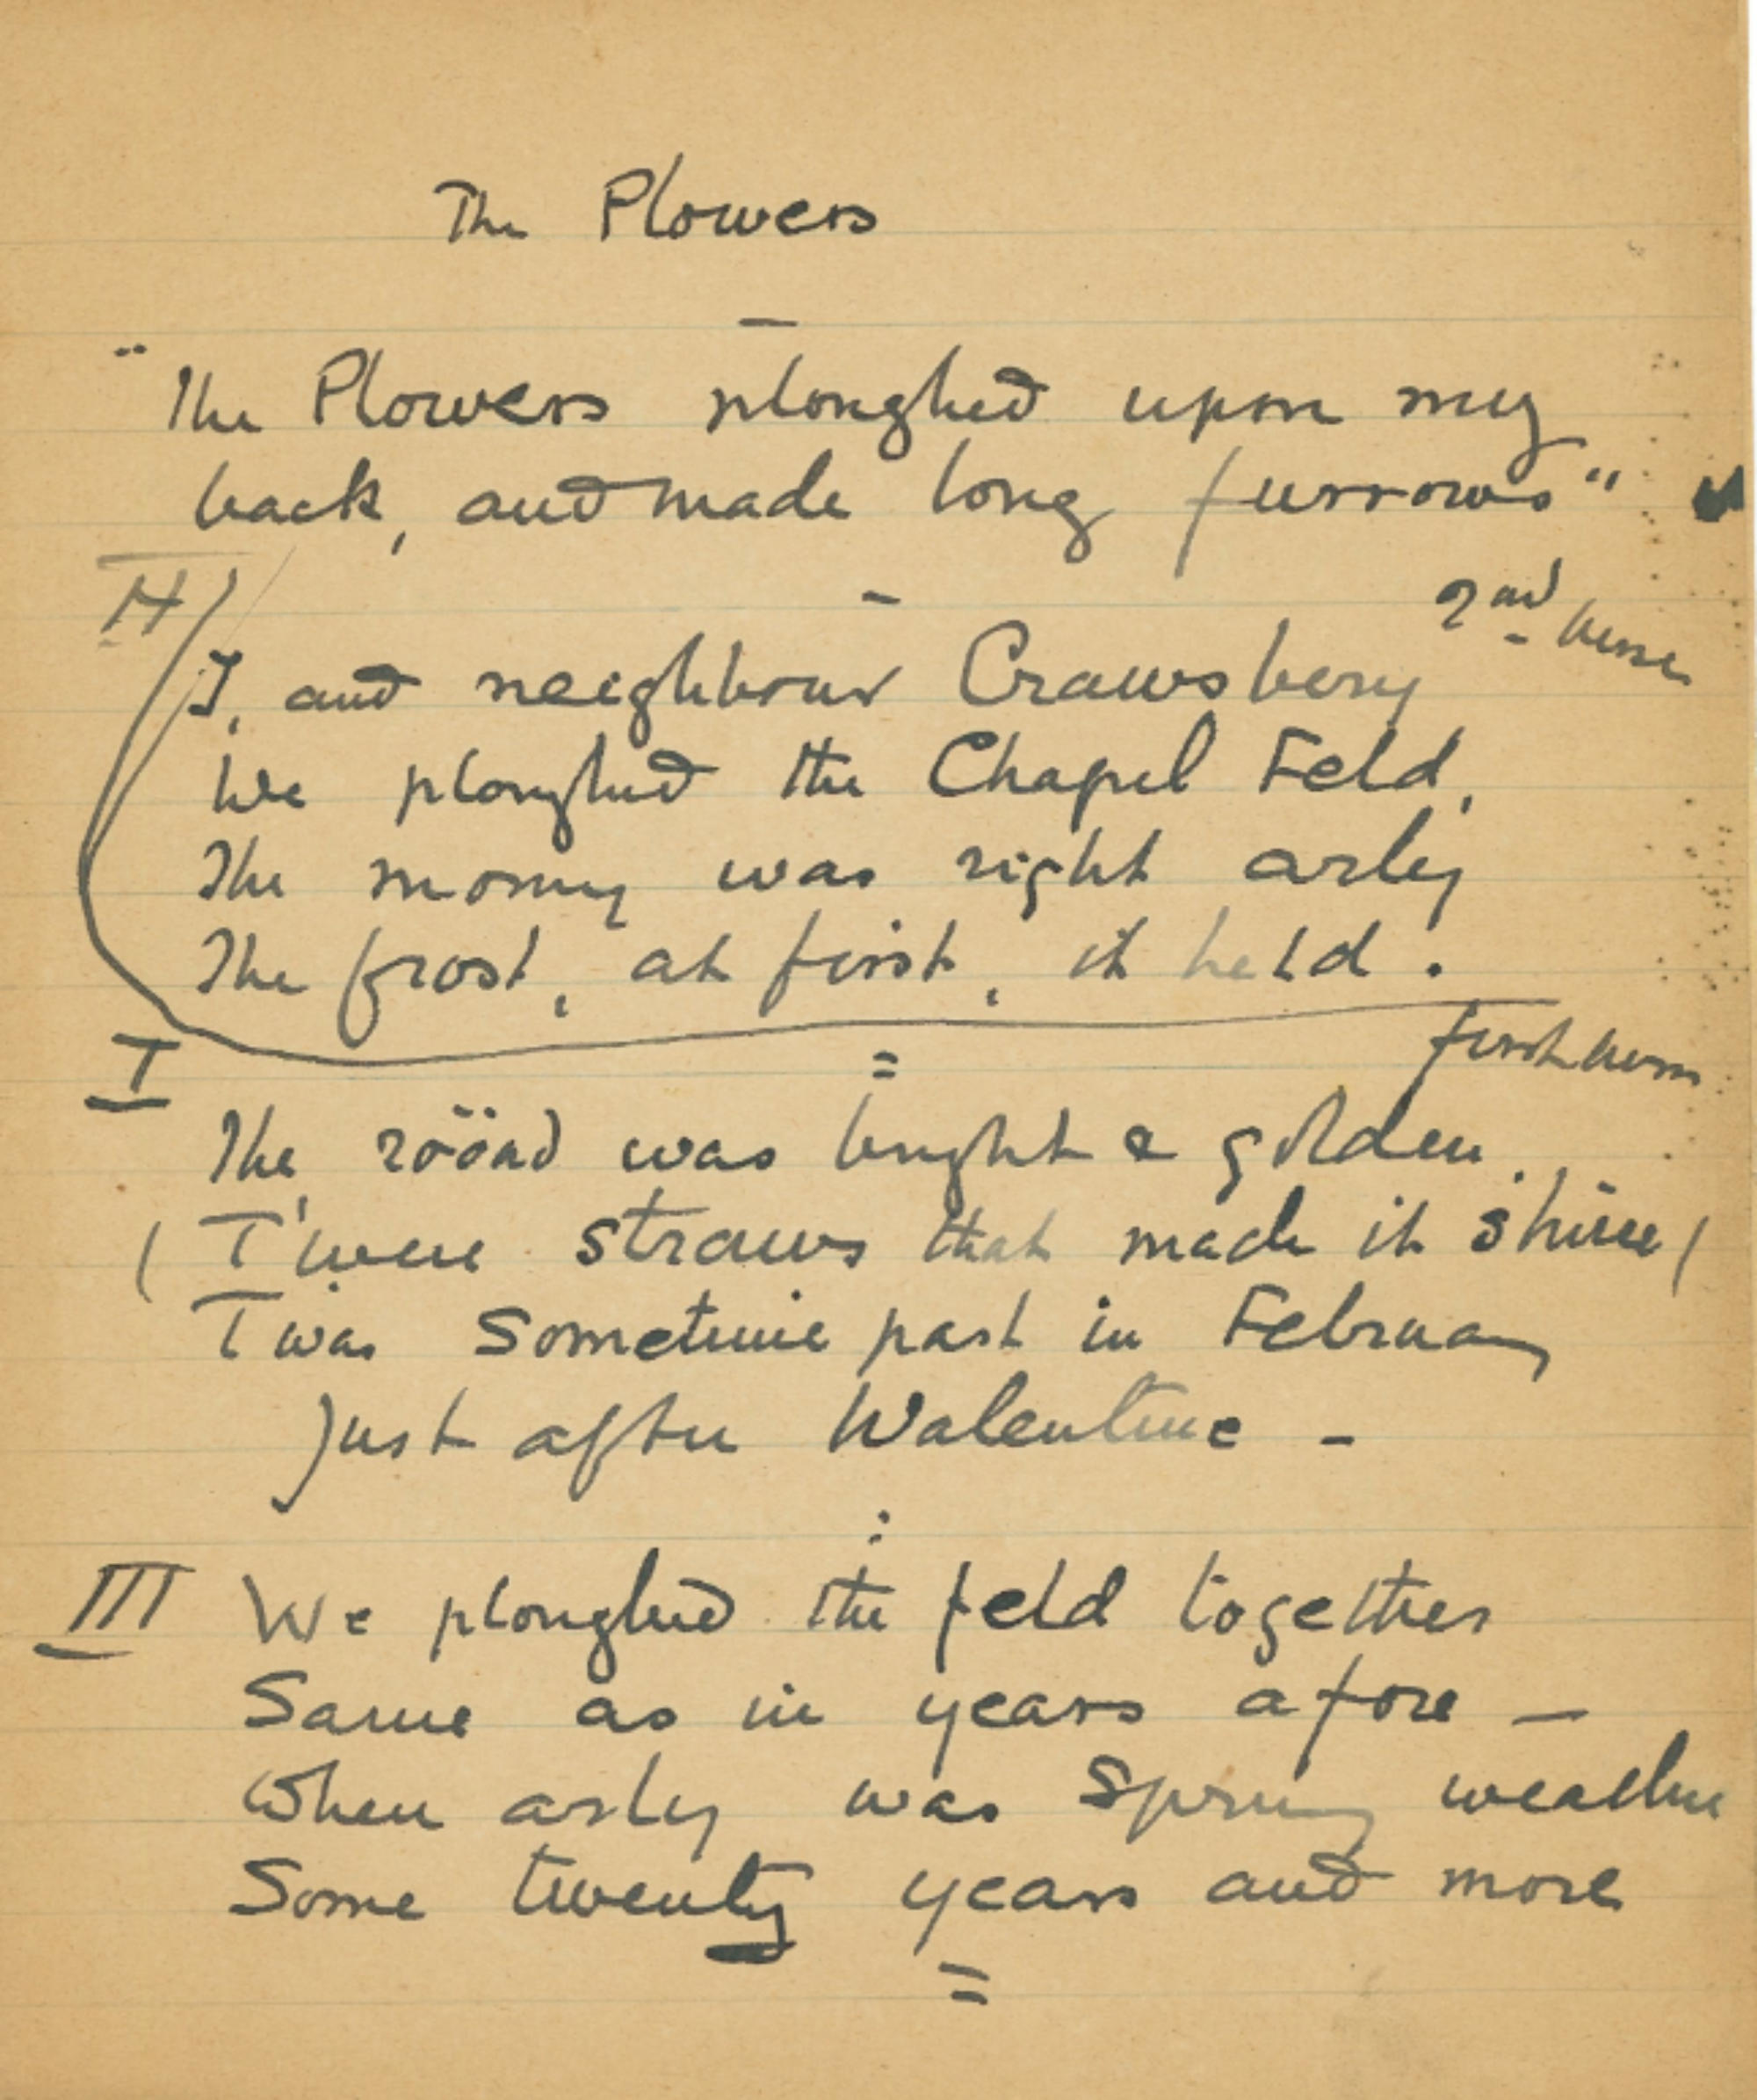 The Plowers
"The Plowers ploughed upon my
back, and made long furrows"
II
2nd verse
I, and neighbour Crawsbery
We ploughed the Chapel Feld,
The morny was right arly
The frost, at first, it held.
I
first verse
The rööad was bright & golden.
(T'were straws that made it shine)
Twas Sometime past in February
Just after Walentine -
III We ploughed the feld together
Same as in years afore -
When arly was Spring weather
Some twenty years and more